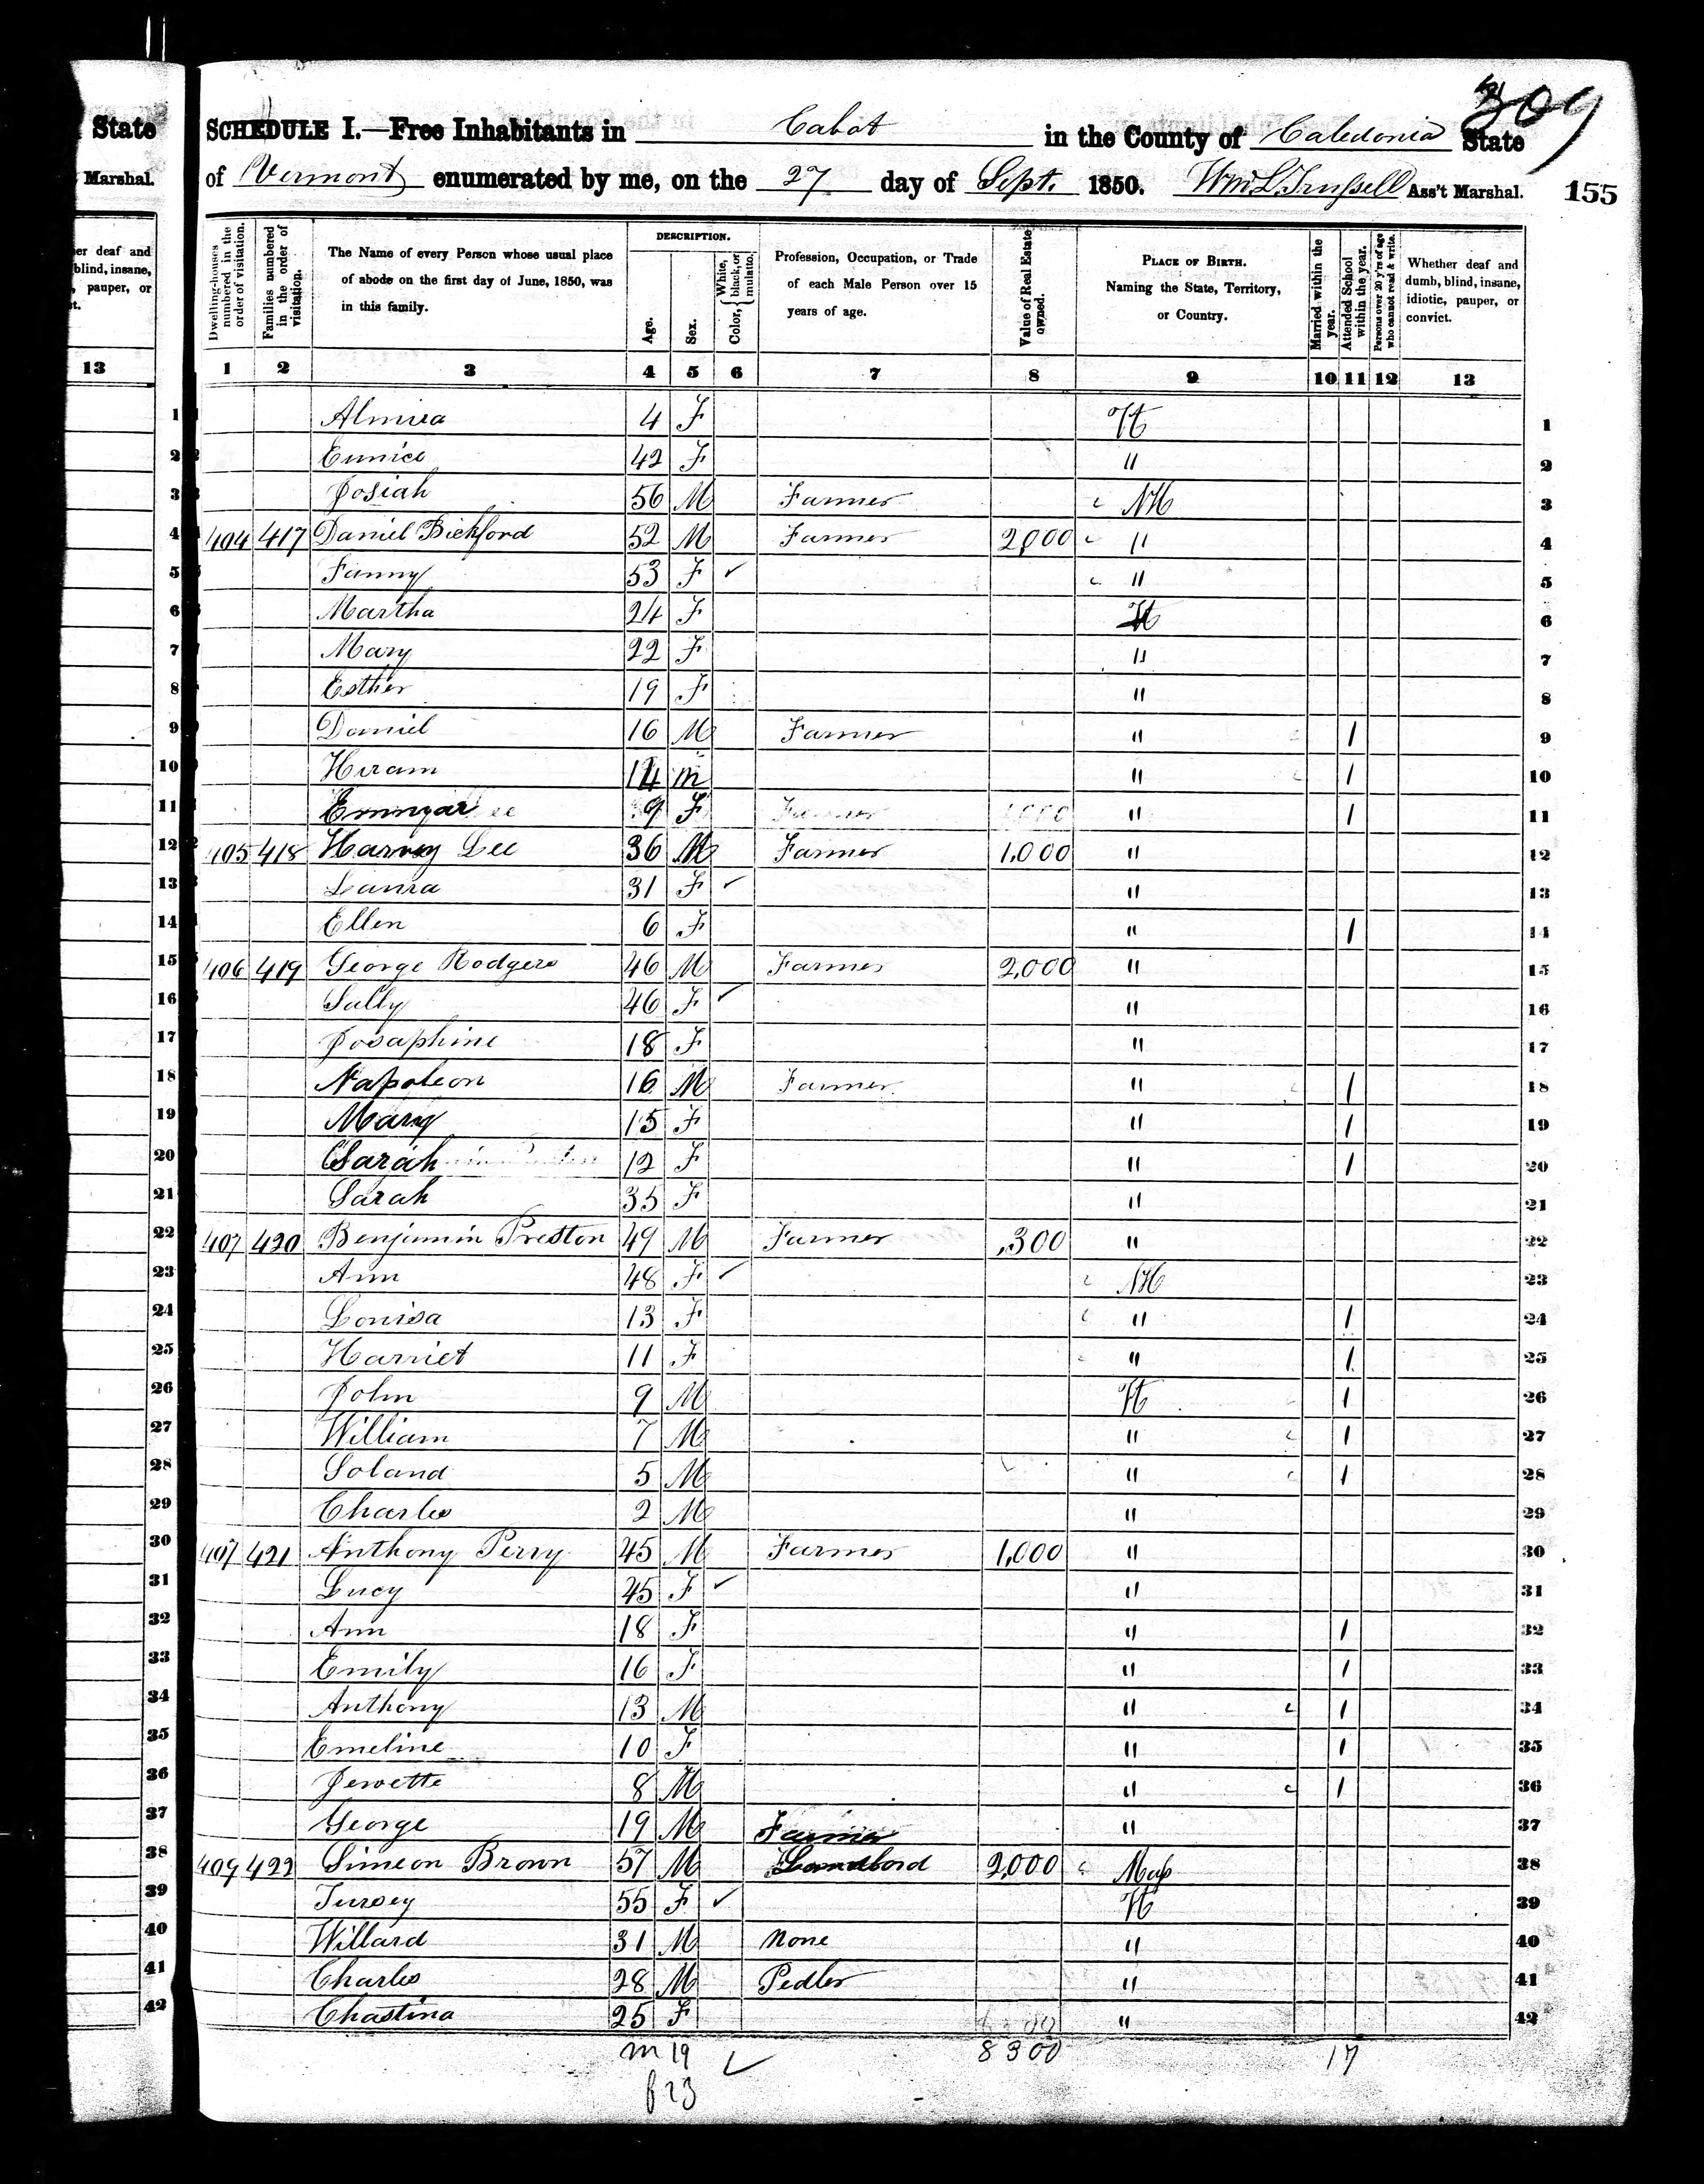 309
State SCHEDULE I.—Free Inhabitants in Cabot in the County of Caledonia State
Marshal. of Vermont enumerated by me, on the 27 day of Sept. 1850. Wm L. Trussell Ass't Marshal. 155
er deaf and blind, insane, pauper, or t.
Dwelling-houses numbered in the order of visitation.
Families numbered in the order of visitation.
The Name of every Person whose usual place of abode on the first day of June, 1850, was in this family.
DESCRIPTION.
Age.
Sex.
Color, { White, black, or mulatto.
Profession, Occupation, or Trade of each Male Person over 15 years of age.
Value of Real Estate owned.
PLACE OF BIRTH. Naming the State, Territory, or Country.
Married within the year.
Attended School within the year.
Persons over 20 y'rs of age who cannot read & write.
Whether deaf and dumb, blind, insane, idiotic, pauper, or convict.
13 1 2 3 4 5 6 7 8 9 10 11 12 13
1 Almira 4 F Vt 1
2 Eunice 42 F " 2
3 Josiah 56 M Farmer NH 3
4 404 417 Daniel Bickford 52 M Farmer 2,000 " 4
5 Fanny 53 F ✓ " 5
6 Martha 24 F Vt 6
7 Mary 22 F " 7
8 Esther 19 F " 8
9 Daniel 16 M Farmer " 1 9
10 Hiram 14 m " 1 10
11 9 F " 1 11
12 405 418 Harvey Lee 36 M Farmer 1,000 " 12
13 Laura 31 F ✓ " 13
14 Ellen 6 F " 1 14
15 406 419 George Rodgers 46 M Farmer 2,000 " 15
16 Sally 46 F ✓ " 16
17 Josaphine 18 F " 17
18 Napoleon 16 M Farmer " 1 18
19 Mary 15 F " 1 19
20 Sarah 12 F " 1 20
21 Sarah 35 F " 21
22 407 420 Benjamin Preston 49 M Farmer ,300 " 22
23 Ann 48 F ✓ NH 23
24 Louisa 13 F " 1 24
25 Harriet 11 F " 1 25
26 John 9 M Vt 1 26
27 William 7 M " 1 27
28 Soland 5 M " 1 28
29 Charles 2 M " 29
30 407 421 Anthony Perry 45 M Farmer 1,000 " 30
31 Lucy 45 F ✓ " 31
32 Ann 18 F " 1 32
33 Emily 16 F " 1 33
34 Anthony 13 M " 1 34
35 Emeline 10 F " 1 35
36 Jewette 8 M " 1 36
37 George 19 M Farmer " 37
38 409 422 Simeon Brown 57 M Landlord 2,000 Mass 38
39 Tursey 55 F ✓ Vt 39
40 Willard 31 M None " 40
41 Charles 28 M Pedler " 41
42 Chastina 25 F " 42
m 19 ✓ 8300 17
f 23